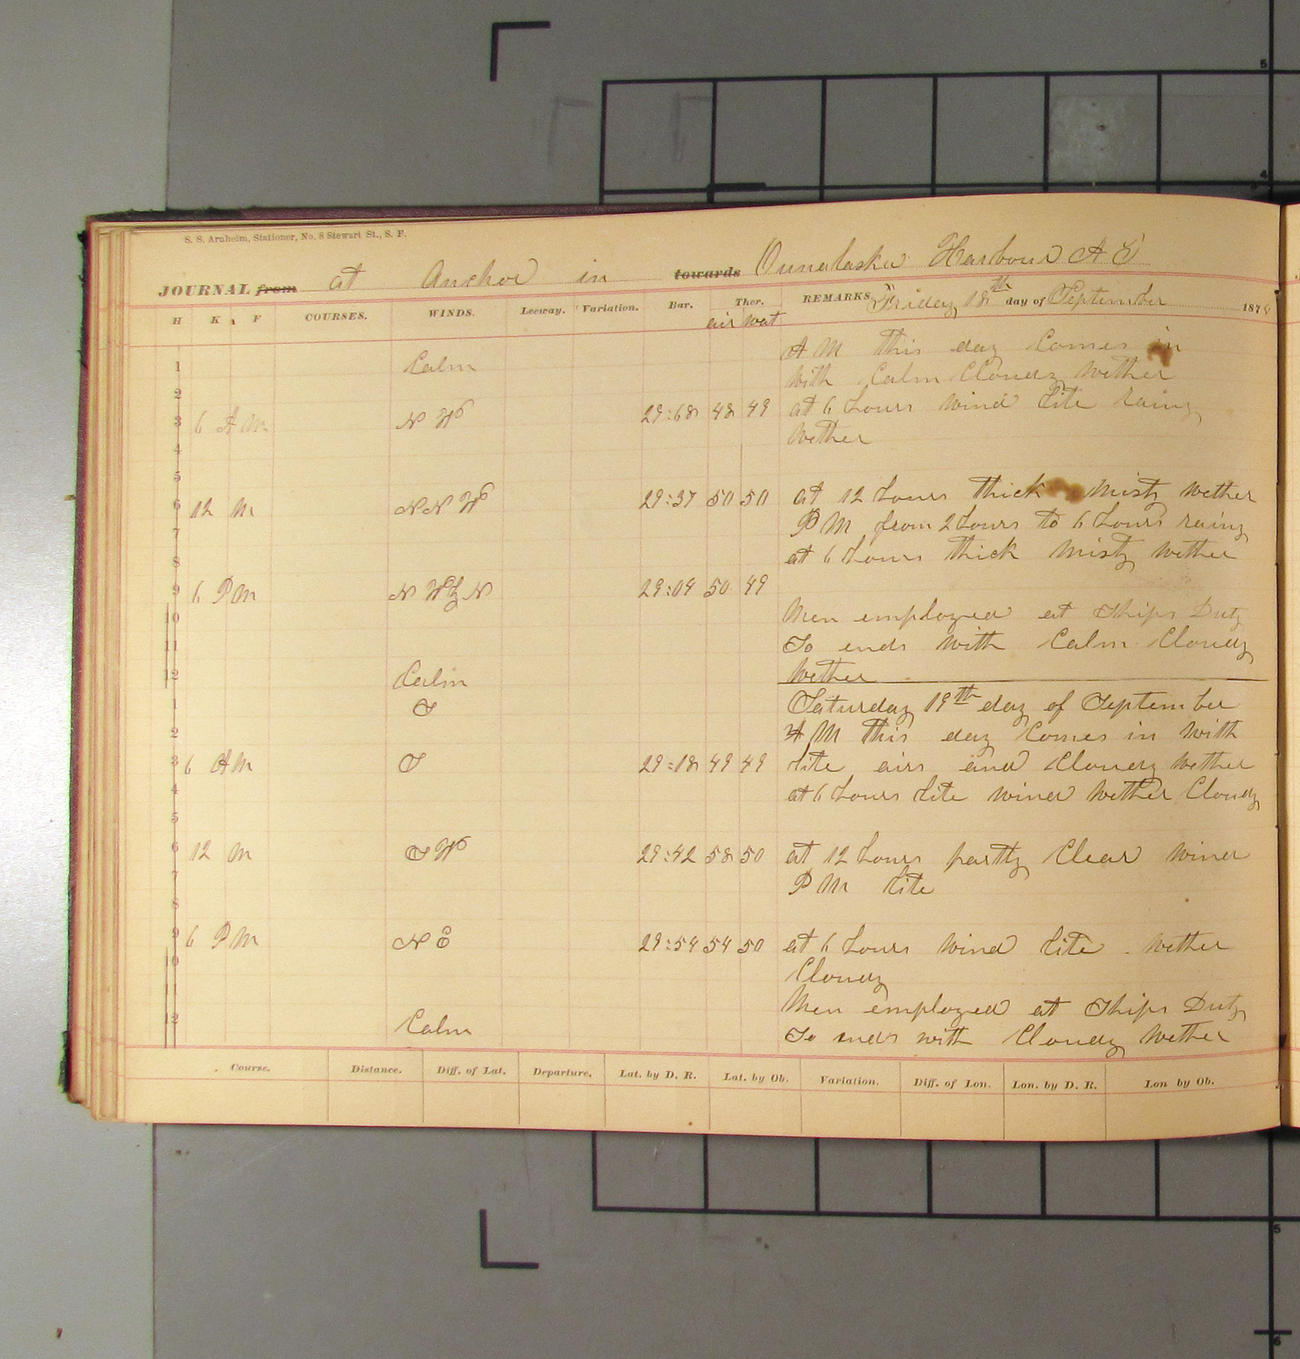 S. S. Arnheim, Stationer, No. 8 Stewart St., S. F.
JOURNAL from at Anchor in towards Ounalaska Harbour A T
H K F COURSES. WINDS. Leeway. Variation. Bar. Ther. REMARKS, Friday 18th day of September 187
air wat
A M this day Comes in
1 Calm
with Calm Cloudy wether
2
3 6 A M N W 29:68 48 49 at 6 hours wind lite rainy
4 wether
5
6 12 M N N W 29:37 50 50 at 12 hours thick misty wether
P M from 2 hours to 6 hours rainy
7
8 at 6 hours thick misty wether
9 6 P M N W by N 29:04 50 49
10 Men employed at Ships Duty
11 So ends with Calm Cloudy
12 Calm wether
1 S Saturday 19th day of September
2 A M this day Comes in with
3 6 A M S 29:18 49 49 lite airs and Cloudy wether
4 at 6 hours lite wind wether Cloudy
5
6 12 M S W 29:42 58 50 at 12 hours partly Clear wind
7 P M lite
8
9 6 P M N E 29:54 54 50 at 6 hours wind lite wether
10 Cloudy
Men employed at Ships Duty
12 Calm So ends with Cloudy wether
Course. Distance. Diff. of Lat. Departure. Lat. by D. R. Lat. by Ob. Variation. Diff. of Lon. Lon. by D. R. Lon by Ob.
5
4
5
6